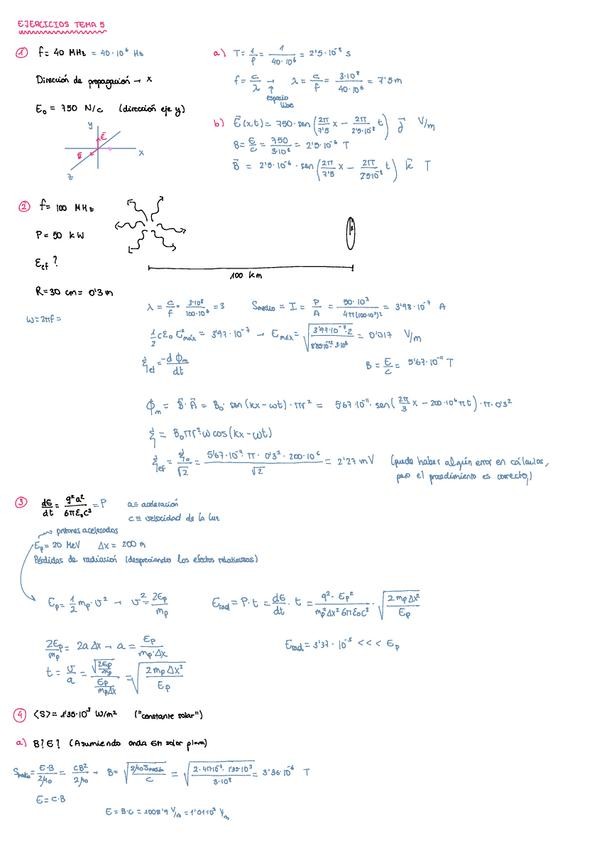 EJERCICIOS TEMA 5
① f = 40 MHz = 40·10⁶ Hz
Dirección de propagación → x
E₀ = 750 N/C (dirección eje y)
y
E
B
x
z
a) T = 1/f = 1/(40·10⁶) = 2'5·10⁻⁸ s
f = c/λ → λ = c/f = 3·10⁸/(40·10⁶) = 7'5 m
espacio libre
b) E⃗(x,t) = 750·sen(2π/7'5 x − 2π/2'5·10⁻⁸ t) j⃗ V/m
B = E/c = 750/3·10⁸ = 2'5·10⁻⁶ T
B⃗ = 2'5·10⁻⁶·sen(2π/7'5 x − 2π/2'5·10⁻⁸ t) k⃗ T
② f = 100 MHz
P = 50 kW
Eef ?
R = 30 cm = 0'3 m
ω = 2πf =
100 km
λ = c/f = 3·10⁸/100·10⁶ = 3 Smedio = I = P/A = 50·10³/4π(100·10³)² = 3'98·10⁻⁷ A
1/2 cε₀ E²máx = 3'97·10⁻⁷ → Emáx = √(3'97·10⁻⁷·2/8'85·10⁻¹²·3·10⁸) = 0'017 V/m
= −dΦm/dt B = E/c = 5'67·10⁻¹¹ T
Φm = B⃗·A⃗ = B₀·sen(kx−ωt)·πr² = 5'67·10⁻¹¹·sen(2π/3 x − 200·10⁶πt)·π·0'3²
ξ = B₀πr²ω cos(kx−ωt)
ξef = ξ₀/√2 = 5'67·10⁻¹¹·π·0'3²·200·10⁶/√2 = 2'27 mV (puede haber algún error en cálculos,
pero el procedimiento es correcto)
③ dE/dt = q²a²/6πε₀c³ = P a = aceleración
c = velocidad de la luz
protones acelerados
Ep = 20 MeV Δx = 200 m
Pérdidas de radiación (despreciando los efectos relativistas)
Ep = 1/2 mp·v² → v² = 2Ep/mp Erad = P·t = dE/dt · t = q²·Ep²/mp²Δx²6πε₀c³ · √(2mpΔx²/Ep)
2Ep/mp = 2aΔx → a = Ep/mp·Δx Erad = 3'37·10⁻⁵ <<< Ep
t = v/a = √(2Ep/mp)/(Ep/mpΔx) = √(2mpΔx²/Ep)
④ ⟨S⟩ = 1'35·10³ W/m² ("constante solar")
a) B? E? (Asumiendo onda EM solar plana)
= E·B/2μ₀ = cB²/2μ₀ → B = √(2μ₀Smedio/c) = √(2·4π·10⁻⁷·1'35·10³/3·10⁸) = 3'36·10⁻⁶ T
E = c·B
E = B·c = 1008'9 V/m = 1'01·10³ V/m